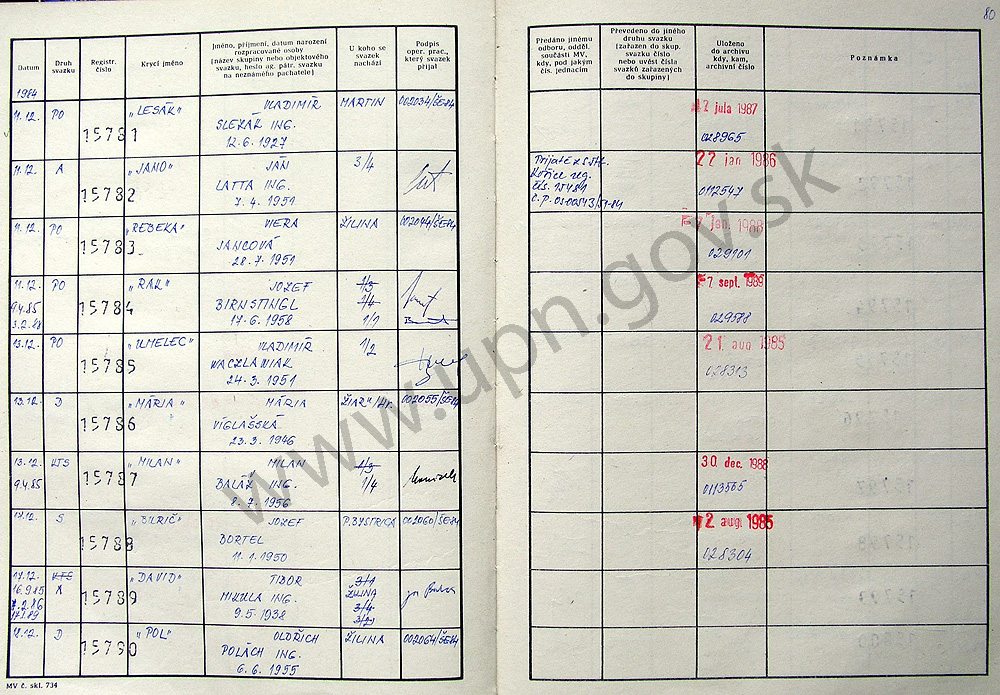 80
Datum
Druh svazku
Registr. číslo
Krycí jméno
Jméno, příjmení, datum narození rozpracované osoby (název skupiny nebo objektového svazku, heslo ag. pátr. svazku na neznámého pachatele)
U koho se svazek nachází
Podpis oper. prac., který svazek přijal
Předáno jinému odboru, odděl. součásti MV, kdy, pod jakým čís. jednacím
Převedeno do jiného druhu svazku (zařazen do skup. svazku číslo nebo uvést čísla svazků zařazených do skupiny)
Uloženo do archivu kdy, kam, archivní číslo
Poznámka
1984
11.12. PO 15781 „LESÁK" VLADIMÍR MARTIN 002034/ŠE-84 12 jula 1987
SLEZÁK ING. 028965
12.6.1927
11.12. A 15782 „JANO" JÁN 3/4 22 jan 1986
LATTA ING. Košice reg. 0112547
7.4.1951
11.12. PO 15783 „REBEKA" VIERA ŽILINA 002044/ŠE-84 7 jan. 1988
JANCOVÁ 029101
28.7.1951
11.12. PO 15784 „RAK" JOZEF 1/3 7 sept. 1989
9.4.85 BIRNSTINGL 1/4 029588
17.6.1958 1/1
13.12. PO 15785 „UMELEC" VLADIMÍR 1/2 21 aug 1985
WACZLAWIAK 028313
24.3.1951
13.12. D 15786 „MÁRIA" MÁRIA 002055/ŠE-84
VÍGLAŠSKÁ
23.3.1946
13.12. KTS 15787 „MILAN" MILAN 1/3 30 dec. 1988
9.4.85 BALÁŽ ING. 1/4 0113565
8.7.1956
17.12. S 15788 JOZEF P.BYSTRICA 002060/ŠE-84 2 aug 1985
BORTEL 028304
11.1.1950
17.12. KTS 15789 „DAVID" TIBOR 3/1
16.9.85 A MIKULA ING. ŽILINA
9.5.1938 3/4
3/2
18.12. D 15790 „POL" OLDŘICH ŽILINA 002064/ŠE-84
POLÁCH ING.
6.6.1955
MV č. skl. 734
www.upn.gov.sk